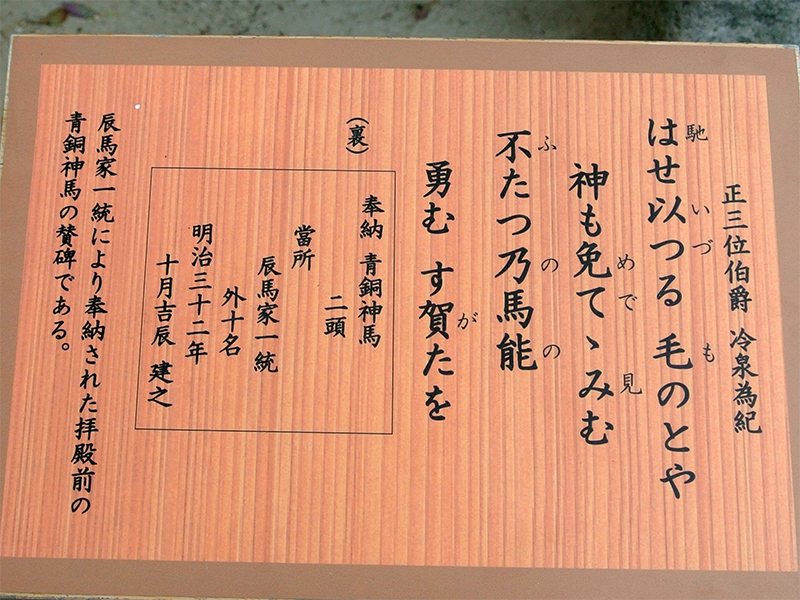 正三位伯爵 冷泉為紀
はせ以つる 毛のとや
馳 いづ も
神も免てゝみむ
めで 見
不たつ乃馬能
ふ の の
勇む す賀たを
が
(裏)
奉納 青銅神馬
二頭
當所
辰馬家一統
外十名
明治三十二年
十月吉辰 建之
辰馬家一統により奉納された拝殿前の
青銅神馬の賛碑である。